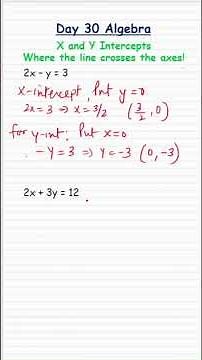 Day 30 Algebra
X and Y Intercepts
Where the line crosses the axes!
2x - y = 3
x-intercept, Put y=0
2x = 3 ⇒ x = 3/2 (3/2, 0)
for y-int: Put x=0
- y = 3 ⇒ y = -3 (0, -3)
2x + 3y = 12